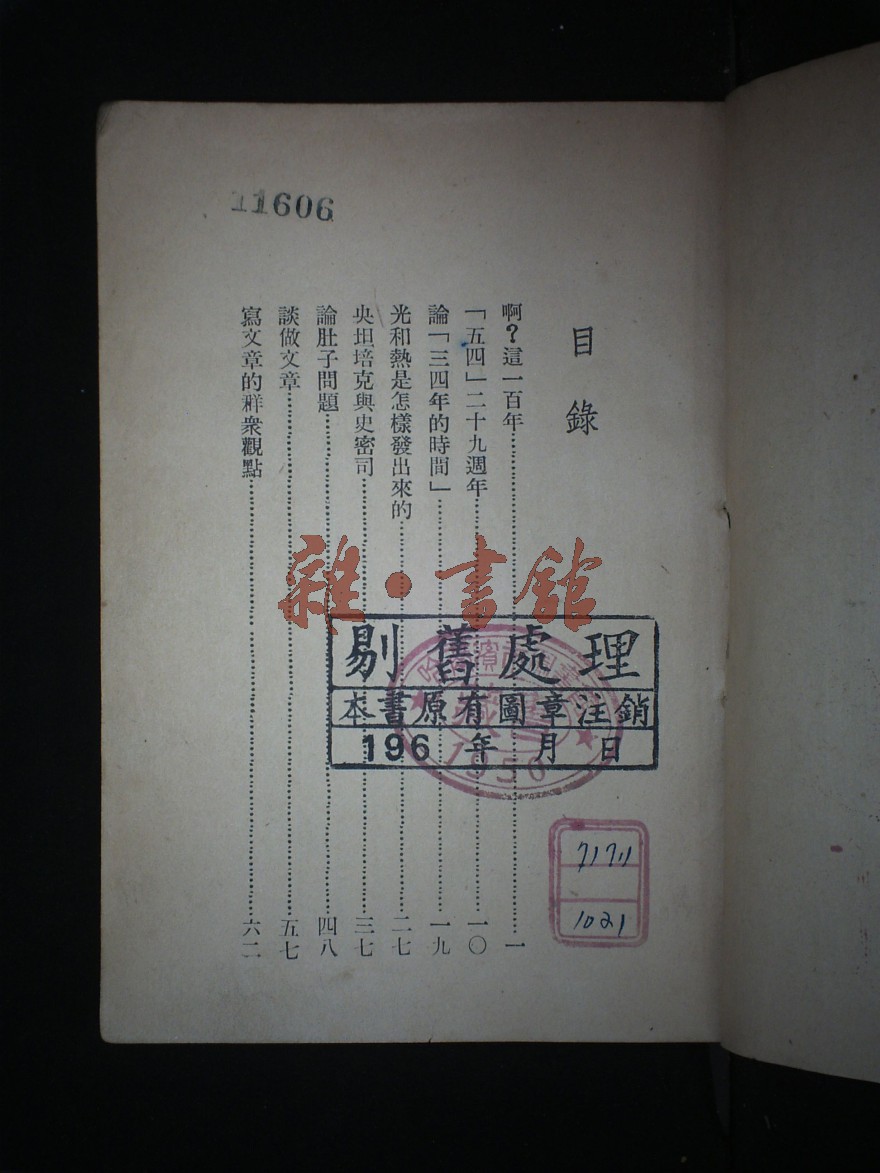 11606
目錄
啊？這一百年……一
「五四」二十九週年……一〇
論「三四年的時間」……一九
光和熱是怎樣發出來的……二七
央坦培克與史密司……三七
論肚子問題……四八
談做文章……五七
寫文章的群衆觀點……六二
雜·書館
剔舊處理
本書原有圖章注銷
196 年 月 日
1950
1021